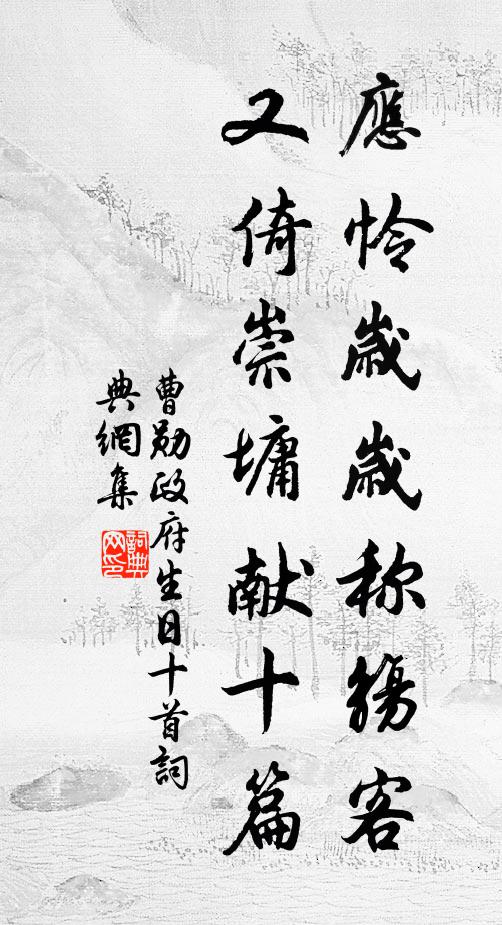 應怜歲歲称觴客
又倚崇墉献十篇
曹勛政府生日十首詞
典網集
詞典
网印